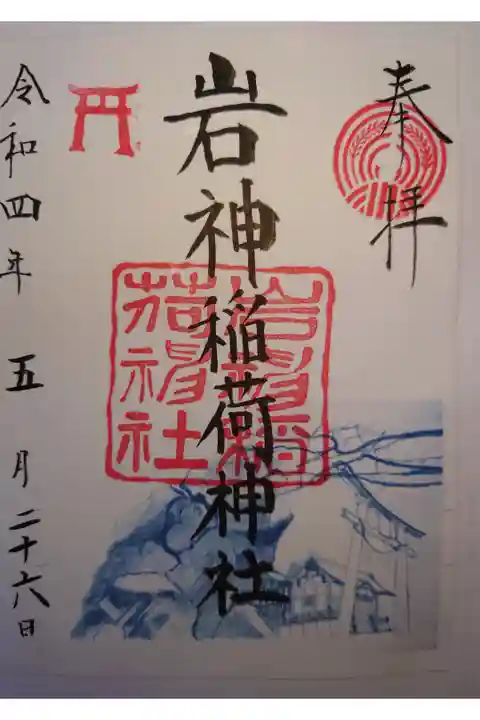 奉拝
岩神稲荷神社
岩神稲荷神社
令和四年 五月二十六日